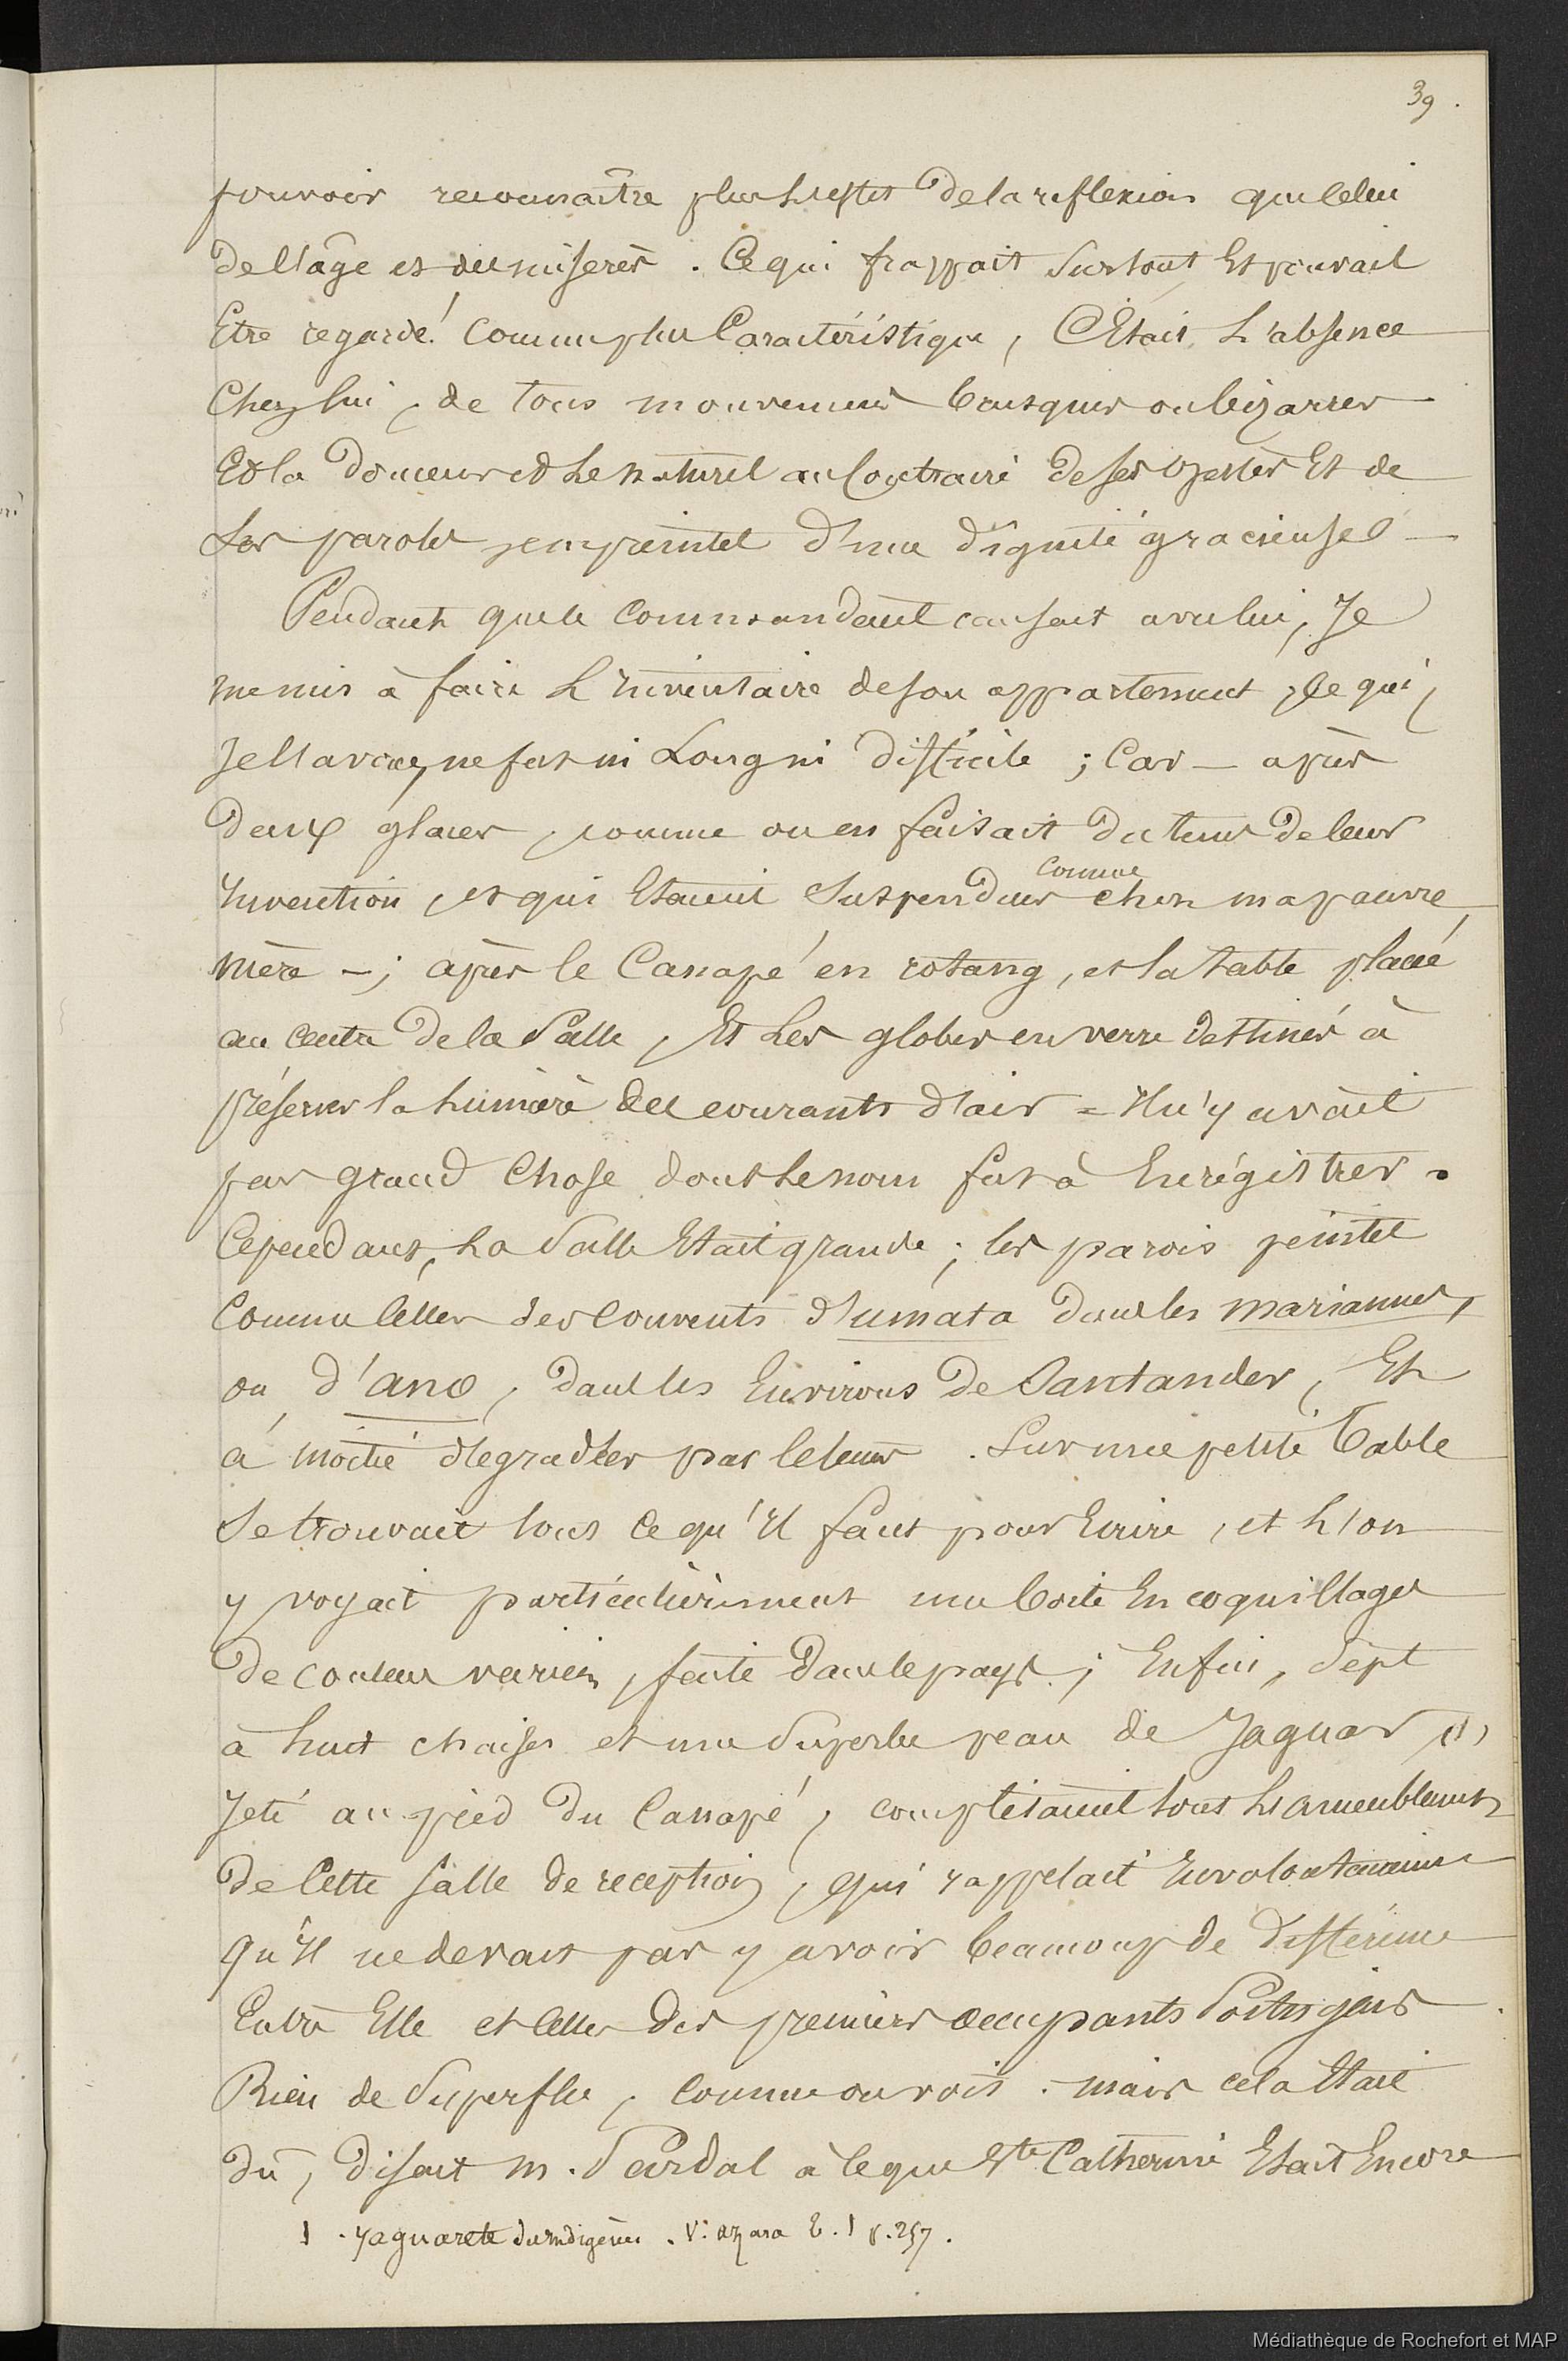 39.
pouvoir reconnaître plus d'effets de la reflexion que celui
de l'âge et des misères. Ce qui frappait surtout et pouvait
Etre regardé comme plus Caractéristique, C'Etait L'absence
Chez lui, de tous mouvemens brusques ou bizarres
Et la douceur et Le naturel au Contraire de ses gestes Et de
Ses paroles, empreintes d'une dignité gracieuse
Pendant que le Commandant causait avec lui, Je
me mis à faire L'inventaire de son appartement, Ce qui,
Je l'avoue, ne fut ni Long ni difficile ; Car _ après
deux glaces, comme on en faisait du tems de leur
invention, et qui Etaient Suspendues comme chez ma pauvre
mère _ ; après le Canapé en rotang, et la table placée
au centre de la Salle, Et Les globes en verre destinés à
préserver la lumière des courants d'air = Il n'y avait
pas grand Chose dont Le nom fut à Enrégistrer.
Cependant, La Salle Etait grande ; les parois peintes
Comme Celles des Couvents d'umata dans les mariannes,
ou d'ano, dans les Environs de Santander, Et
à moitié dégradées par le tems. Sur une petite table
Se trouvait tout Ce qu'Il faut pour Ecrire, et L'on
y voyait particulièrement une boite En coquillages
de couleurs variées, faite dans le pays ; Enfin, Sept
à huit chaises et une Superbe peau de Jaguar (1)
Jeté au pied du Canapé, complétaient tout L'ameublement
de Cette salle de reception, qui rappelait Involontairement
qu'Il ne devait pas y avoir beaucoup de différence
Entre Elle et Celles des premiers occupants Portugais.
Rien de Superflu, Comme on voit. mais cela Etait
dû, disait M. Pardal à Ce que Ste Catherine Etait Encore
1 . yaguarete des indigènes. V: azara t. 1 p. 257.
Médiathèque de Rochefort et MAP